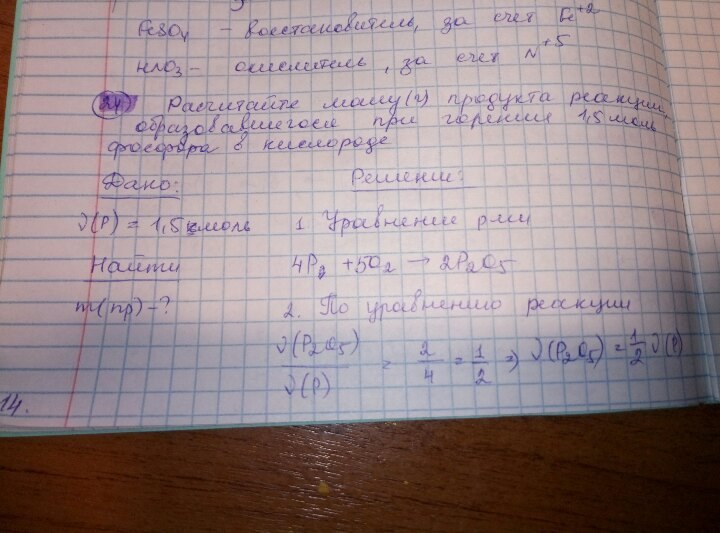 FeSO4 – восстановитель, за счет Fe+2
HNO3 – окислитель, за счет N+5
24) Расчитайте массу(г) продукта реакции,
образовавшегося при горении 1,5 моль
фосфора в кислороде
Дано: Решение:
ν(P) = 1,5 моль 1 Уравнение р-ии
Найти 4P + 5O2 → 2P2O5
m(пр) – ? 2. По уравнению реакции
ν(P2O5) / ν(P) = 2/4 = 1/2 => ν(P2O5) = 1/2 ν(P)
14.